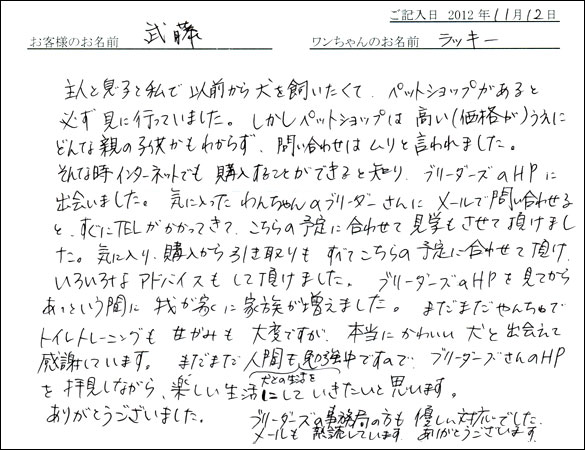 ご記入日 2012年11月12日
お客様のお名前 武藤 ワンちゃんのお名前 ラッキー
主人と息子と私で以前から犬を飼いたくて、ペットショップがあると
必ず見に行っていました。しかしペットショップは高い(価格が)うえに
どんな親の子供かもわからず、問い合わせはムリと言われました。
そんな時インターネットでも購入することができると知り、ブリーダーズのHPに
出会いました。気に入ったわんちゃんのブリーダーさんにメールで問い合わせる
と、すぐにTELがかかってきて、こちらの予定に合わせて見学もさせて頂けまし
た。気に入り、購入から引き取りもすべてこちらの予定に合わせて頂け、
いろいろなアドバイスもして頂けました。ブリーダーズのHPを見てから
あっという間に我が家に家族が増えました。まだまだやんちゃで
トイレトレーニングも甘がみも大変ですが、本当にかわいい犬と出会えて
感謝しています。まだまだ人間も勉強中ですので、ブリーダーズさんのHP
を拝見しながら、楽しい生活にしていきたいと思います。
犬との生活を
ありがとうございました。
ブリーダーズの事務局の方も優しい対応でした。
メールも熟読しています。ありがとうございます。